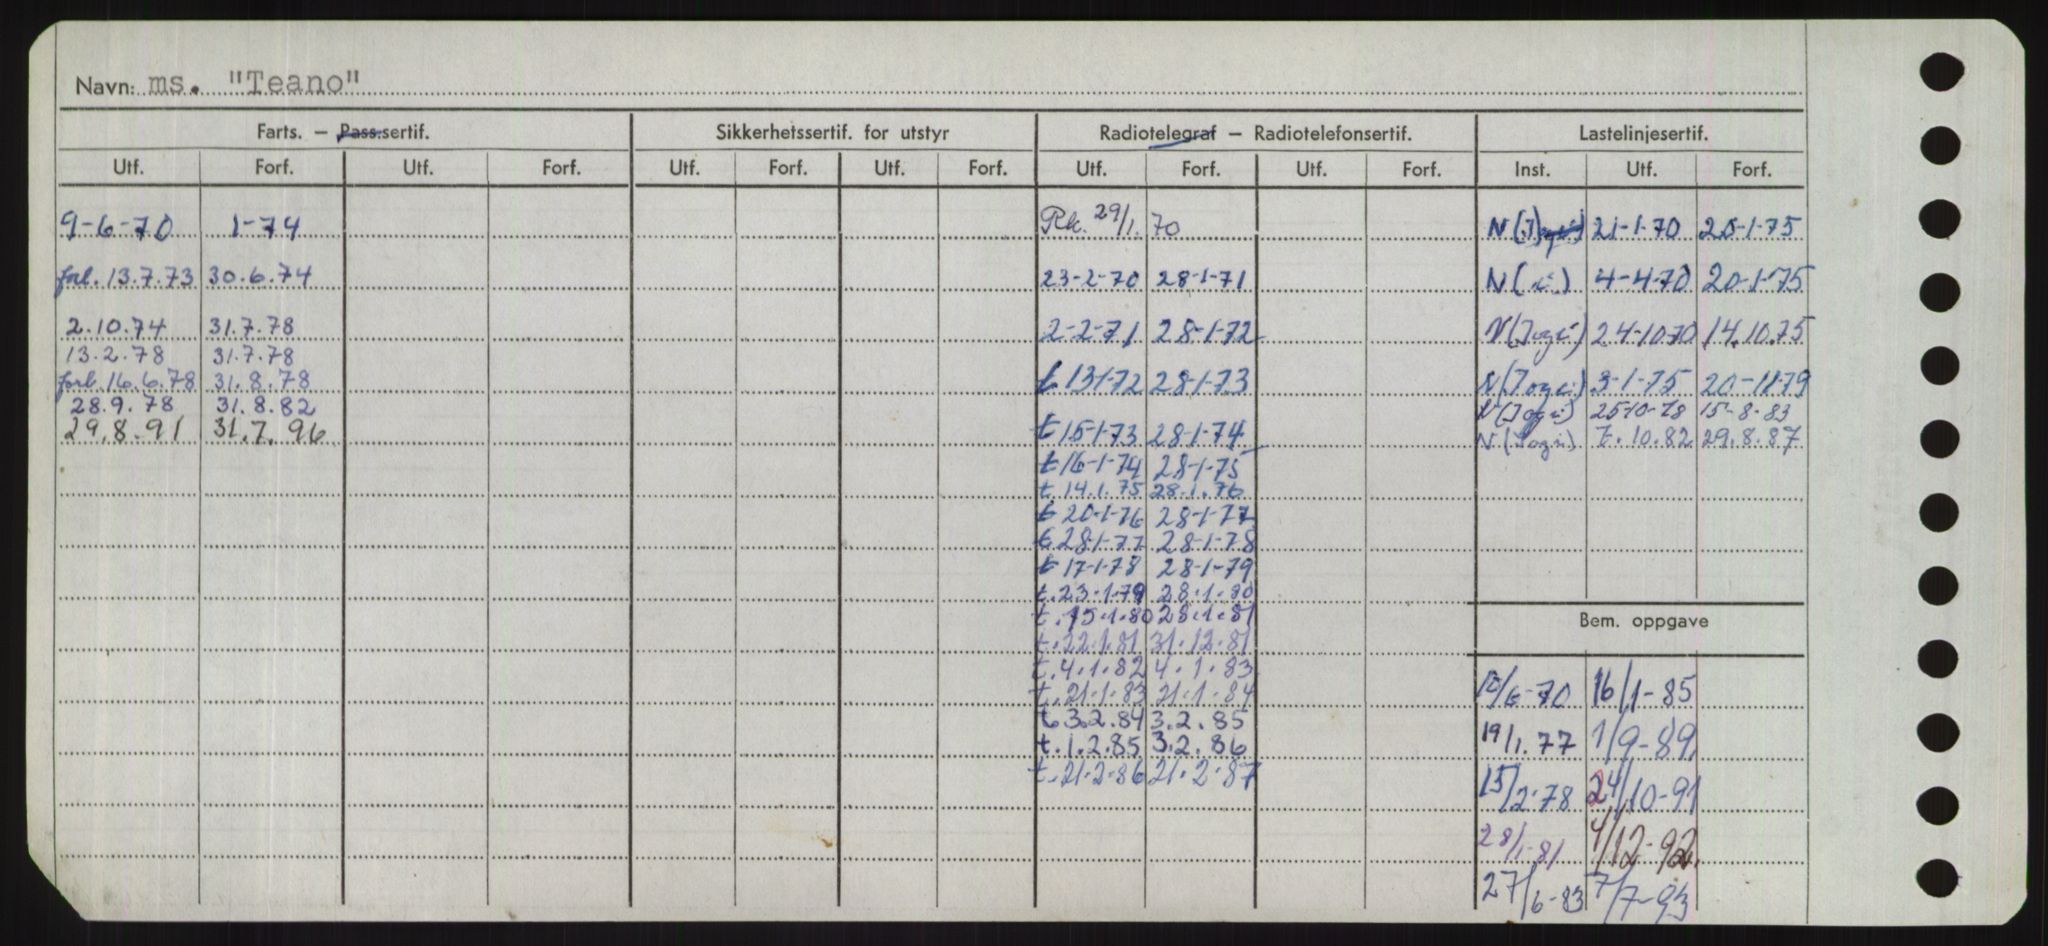 Navn: ms. "Teano"
Farts. — Pass.sertif. Sikkerhetssertif. for utstyr Radiotelegraf — Radiotelefonsertif. Lastelinjesertif.
Utf. Forf. Utf. Forf. Utf. Forf. Utf. Forf. Utf. Forf. Utf. Forf. Inst. Utf. Forf.
9-6-70 1-74 Rk. 29/1. 70 N (J) 21-1-70 20-1-75
forl. 13.7.73 30.6.74 23-2-70 28-1-71 N ( ) 4-4-70 20-1-75
2.10.74 31.7.78 2-2-71 28-1-72 N (Jogi) 24-10-70 14.10.75
13.2.78 31.7.78
forl. 16.6.78 31.8.78 t 13-1-72 28-1-73 N (Jogi) 3-1-75 20-11-79
28.9.78 31.8.82 N (Jogi) 25-10-78 15-8-83
29.8.91 31.7.96 t 15-1-73 28-1-74 N (Jogi) 7.10.82 29.8.87
t 16-1-74 28-1-75
t. 14.1.75 28.1.76
t 20-1-76 28-1-77
t 28-1-77 28-1-78
t 17-1-78 28-1-79
t. 23.1.79 28.1.80
t. 15.1.80 28.1.81
t. 22.1.81 31.12.81
t. 4.1.82 4.1.83
t. 21.1.83 21.1.84
t. 3.2.84 3.2.85
t. 1.2.85 3.2.86
t. 21.2.86 21.2.87
Bem. oppgave
15/6-70 16/1-85
19/1.77 1/9-89
15/2-78 24/10-91
28/1-81 4/12-92
27/6-83 7/7-93